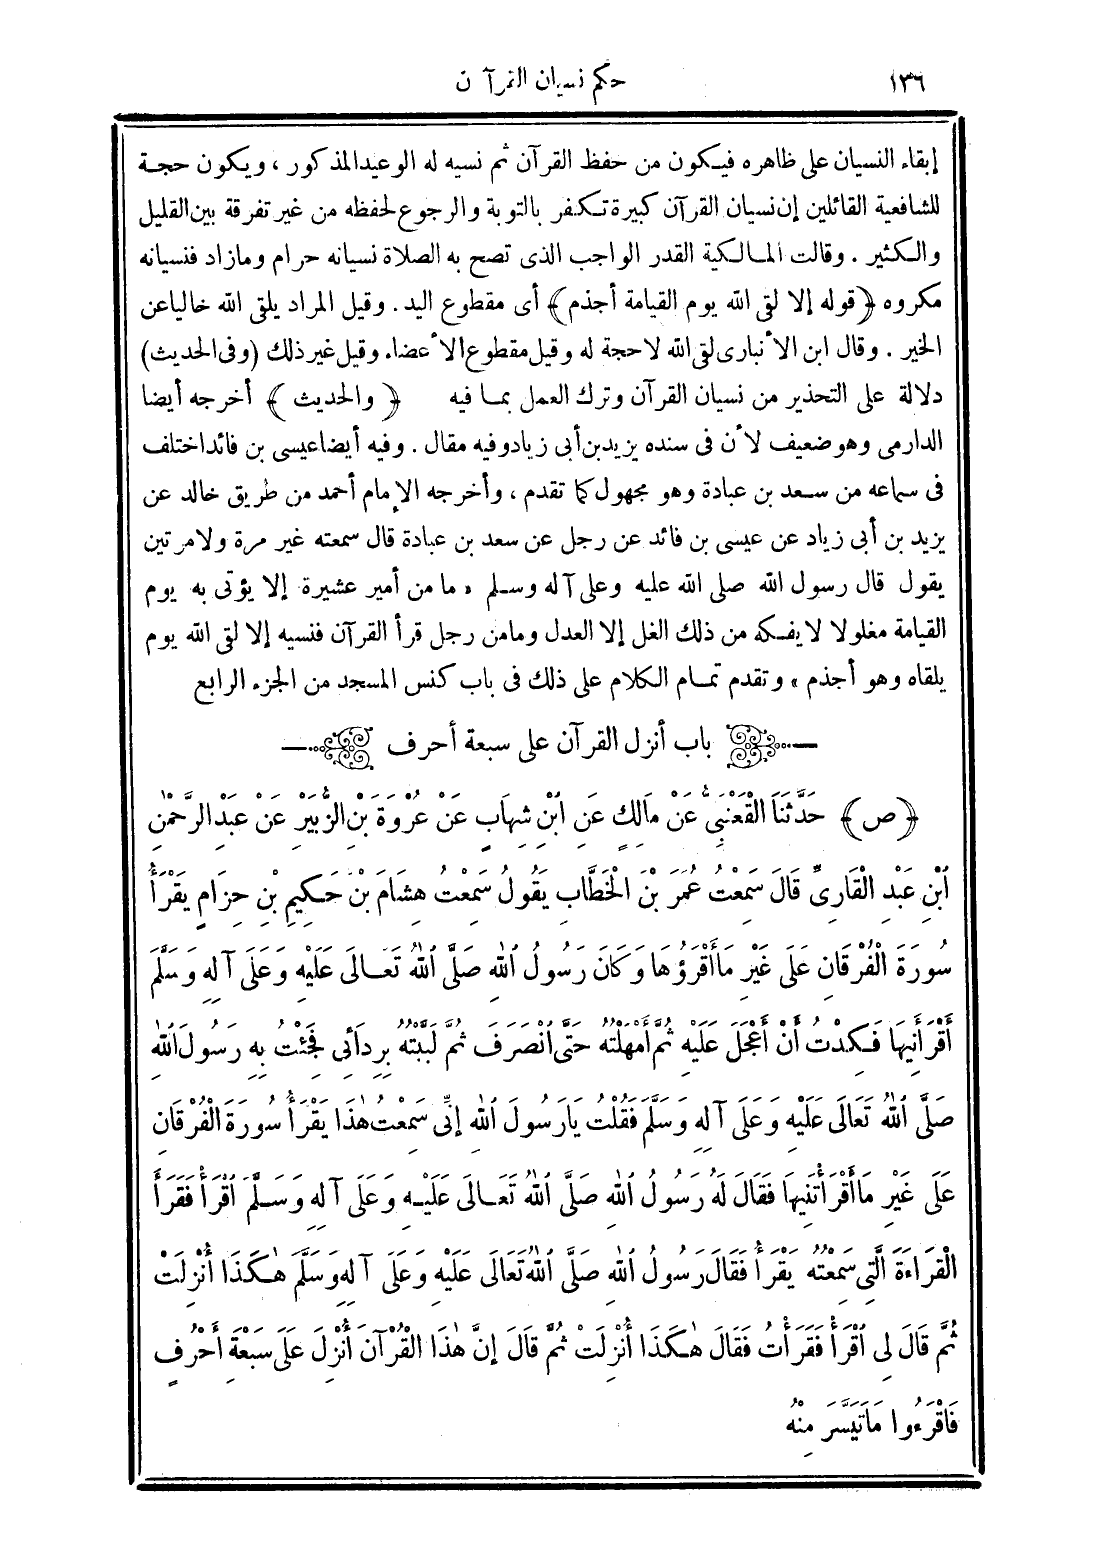 ١٣٦ حكم نسيان القرآن
إبقاء النسيان على ظاهره فيكون من حفظ القرآن ثم نسيه له الوعيد المذكور ، ويكون حجة
للشافعية القائلين إن نسيان القرآن كبيرة تكفر بالتوبة والرجوع لحفظه من غير تفرقة بين القليل
والكثير . وقالت المالكية القدر الواجب الذى تصح به الصلاة نسيانه حرام ومازاد فنسيانه
مكروه ﴿قوله إلا لقى الله يوم القيامة أجذم﴾ أى مقطوع اليد . وقيل المراد يلقى الله خاليا عن
الخير . وقال ابن الأنبارى لقى الله لا حجة له وقيل مقطوع الأعضاء وقيل غير ذلك (وفى الحديث)
دلالة على التحذير من نسيان القرآن وترك العمل بما فيه ﴿ والحديث ﴾ أخرجه أيضا
الدارمى وهو ضعيف لأن فى سنده يزيد بن أبى زياد وفيه مقال . وفيه أيضا عيسى بن فائد اختلف
فى سماعه من سعد بن عبادة وهو مجهول كما تقدم ، وأخرجه الإمام أحمد من طريق خالد عن
يزيد بن أبى زياد عن عيسى بن فائد عن رجل عن سعد بن عبادة قال سمعته غير مرة ولا مرتين
يقول قال رسول الله صلى الله عليه وعلى آله وسلم « ما من أمير عشيرة إلا يؤتى به يوم
القيامة مغلولا لا يفكه من ذلك الغل إلا العدل ومامن رجل قرأ القرآن فنسيه إلا لقى الله يوم
يلقاه وهو أجذم » وتقدم تمام الكلام على ذلك فى باب كنس المسجد من الجزء الرابع
باب أنزل القرآن على سبعة أحرف
﴿ص﴾ حَدَّثَنَا الْقَعْنَبِىُّ عَنْ مَالِكٍ عَنِ ابْنِ شِهَابٍ عَنْ عُرْوَةَ بْنِ الزُّبَيْرِ عَنْ عَبْدِ الرَّحْمٰنِ
ابْنِ عَبْدٍ الْقَارِىِّ قَالَ سَمِعْتُ عُمَرَ بْنَ الْخَطَّابِ يَقُولُ سَمِعْتُ هِشَامَ بْنَ حَكِيمِ بْنِ حِزَامٍ يَقْرَأُ
سُورَةَ الْفُرْقَانِ عَلَى غَيْرِ مَا أَقْرَؤُهَا وَكَانَ رَسُولُ اللهِ صَلَّى اللهُ تَعَالَى عَلَيْهِ وَعَلَى آلِهِ وَسَلَّمَ
أَقْرَأَنِيهَا فَكِدْتُ أَنْ أَعْجَلَ عَلَيْهِ ثُمَّ أَمْهَلْتُهُ حَتَّى انْصَرَفَ ثُمَّ لَبَّبْتُهُ بِرِدَائِى فَجِئْتُ بِهِ رَسُولَ اللهِ
صَلَّى اللهُ تَعَالَى عَلَيْهِ وَعَلَى آلِهِ وَسَلَّمَ فَقُلْتُ يَا رَسُولَ اللهِ إِنِّى سَمِعْتُ هٰذَا يَقْرَأُ سُورَةَ الْفُرْقَانِ
عَلَى غَيْرِ مَا أَقْرَأْتَنِيهَا فَقَالَ لَهُ رَسُولُ اللهِ صَلَّى اللهُ تَعَالَى عَلَيْهِ وَعَلَى آلِهِ وَسَلَّمَ اقْرَأْ فَقَرَأَ
الْقِرَاءَةَ الَّتِى سَمِعْتُهُ يَقْرَأُ فَقَالَ رَسُولُ اللهِ صَلَّى اللهُ تَعَالَى عَلَيْهِ وَعَلَى آلِهِ وَسَلَّمَ هٰكَذَا أُنْزِلَتْ
ثُمَّ قَالَ لِى اقْرَأْ فَقَرَأْتُ فَقَالَ هٰكَذَا أُنْزِلَتْ ثُمَّ قَالَ إِنَّ هٰذَا الْقُرْآنَ أُنْزِلَ عَلَى سَبْعَةِ أَحْرُفٍ
فَاقْرَءُوا مَا تَيَسَّرَ مِنْهُ